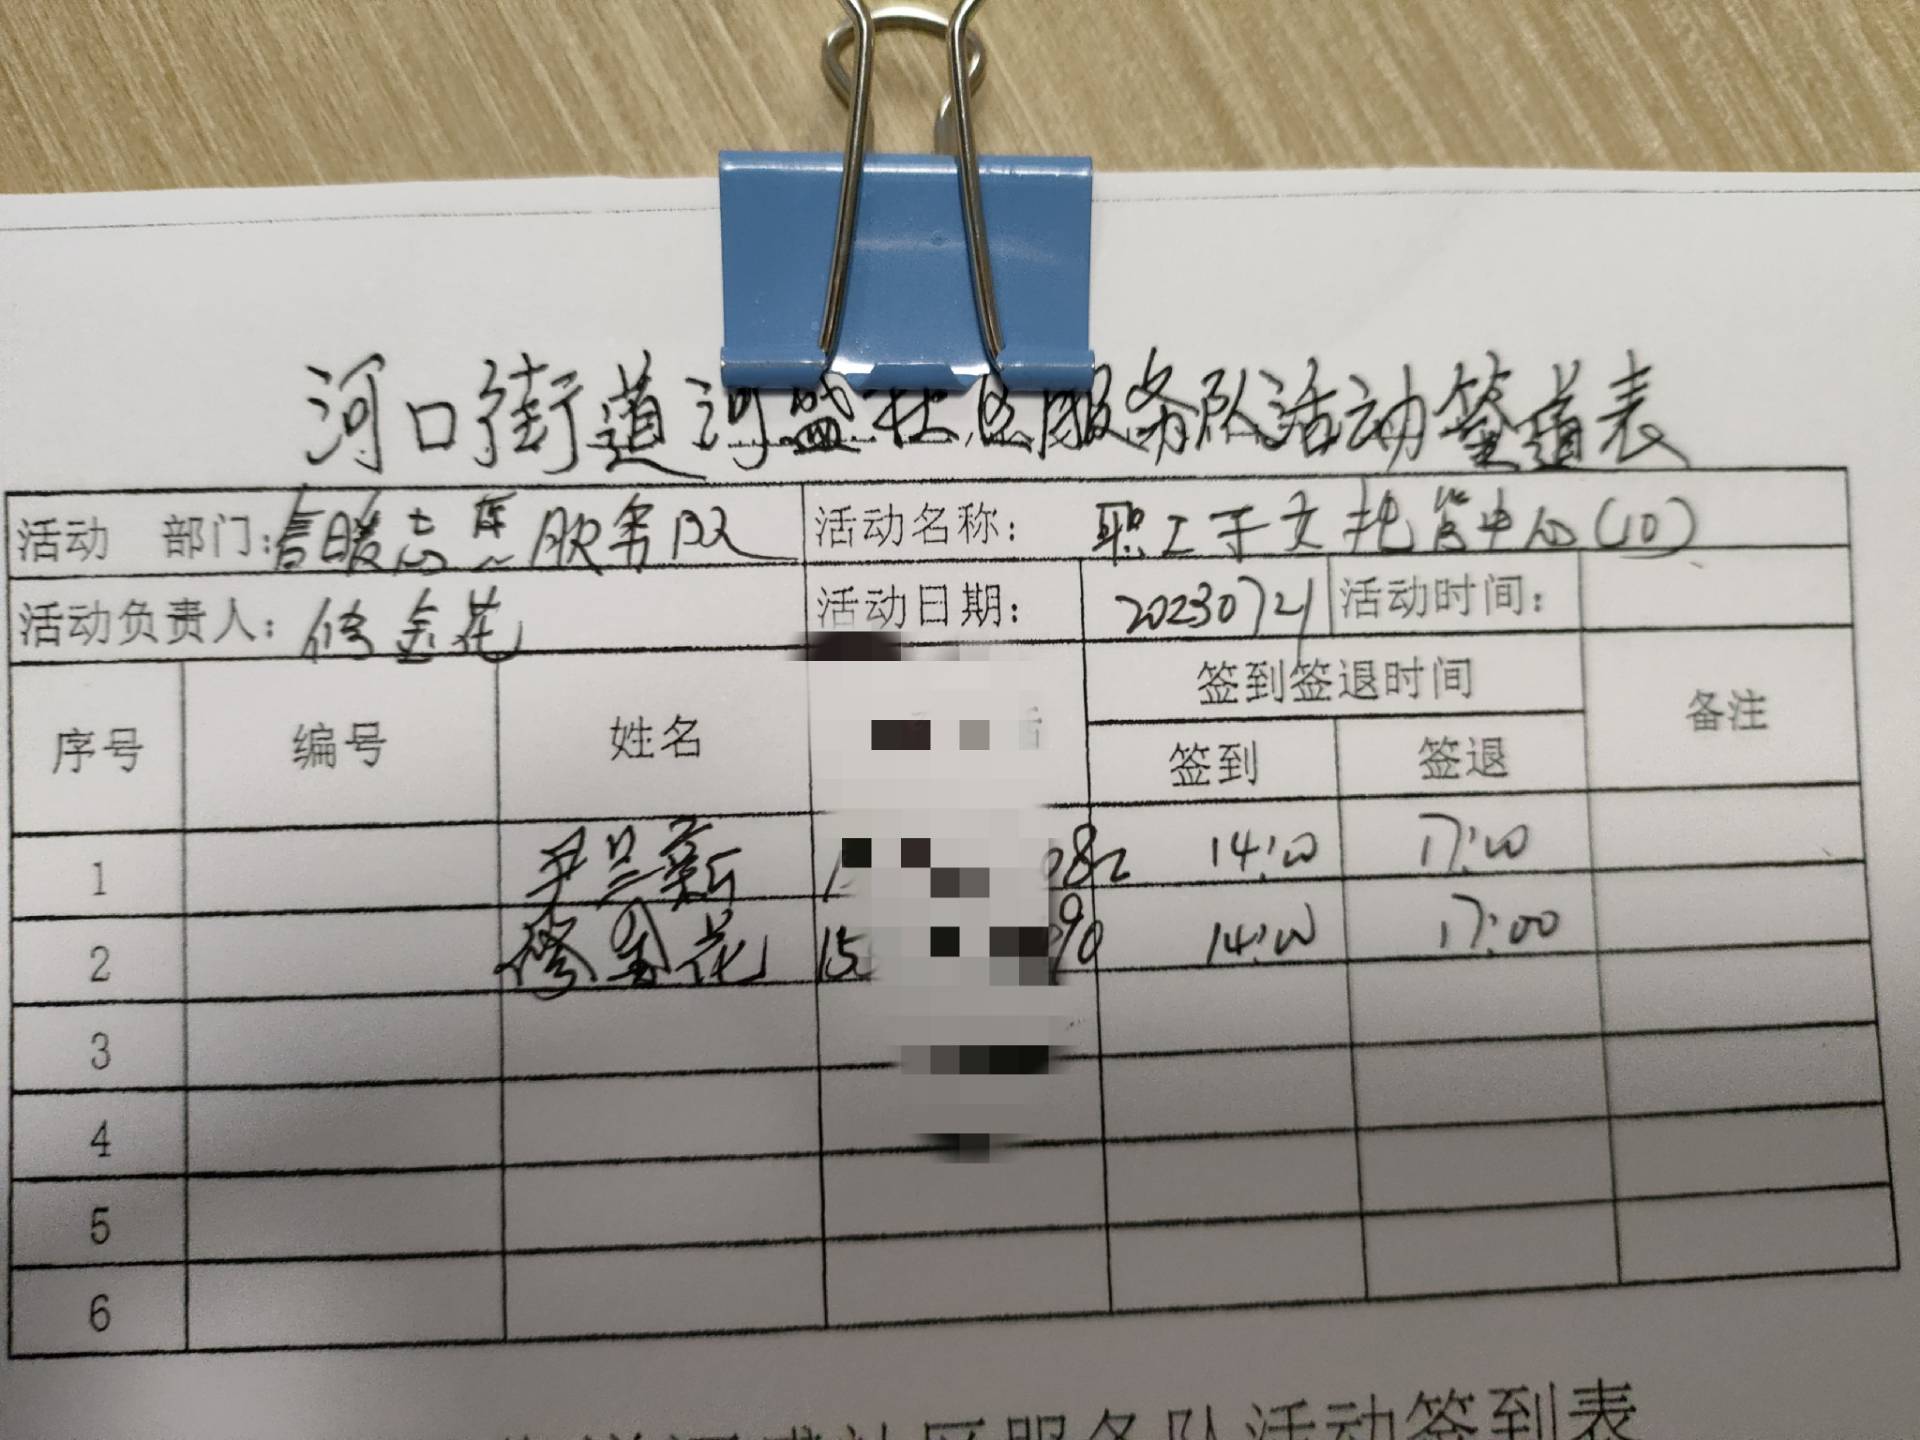 河口街道河盛社区服务队活动签道表
活动 部门：春暖志愿服务队 活动名称： 职工子女托管中心(10)
活动负责人：修金花 活动日期： 20230721 活动时间：
序号 编号 姓名 签到签退时间 备注
签到 签退
1 尹兰新 14:00 17:00
2 修金花 15 90 14:00 17:00
3
4
5
6
社区服务队活动签到表